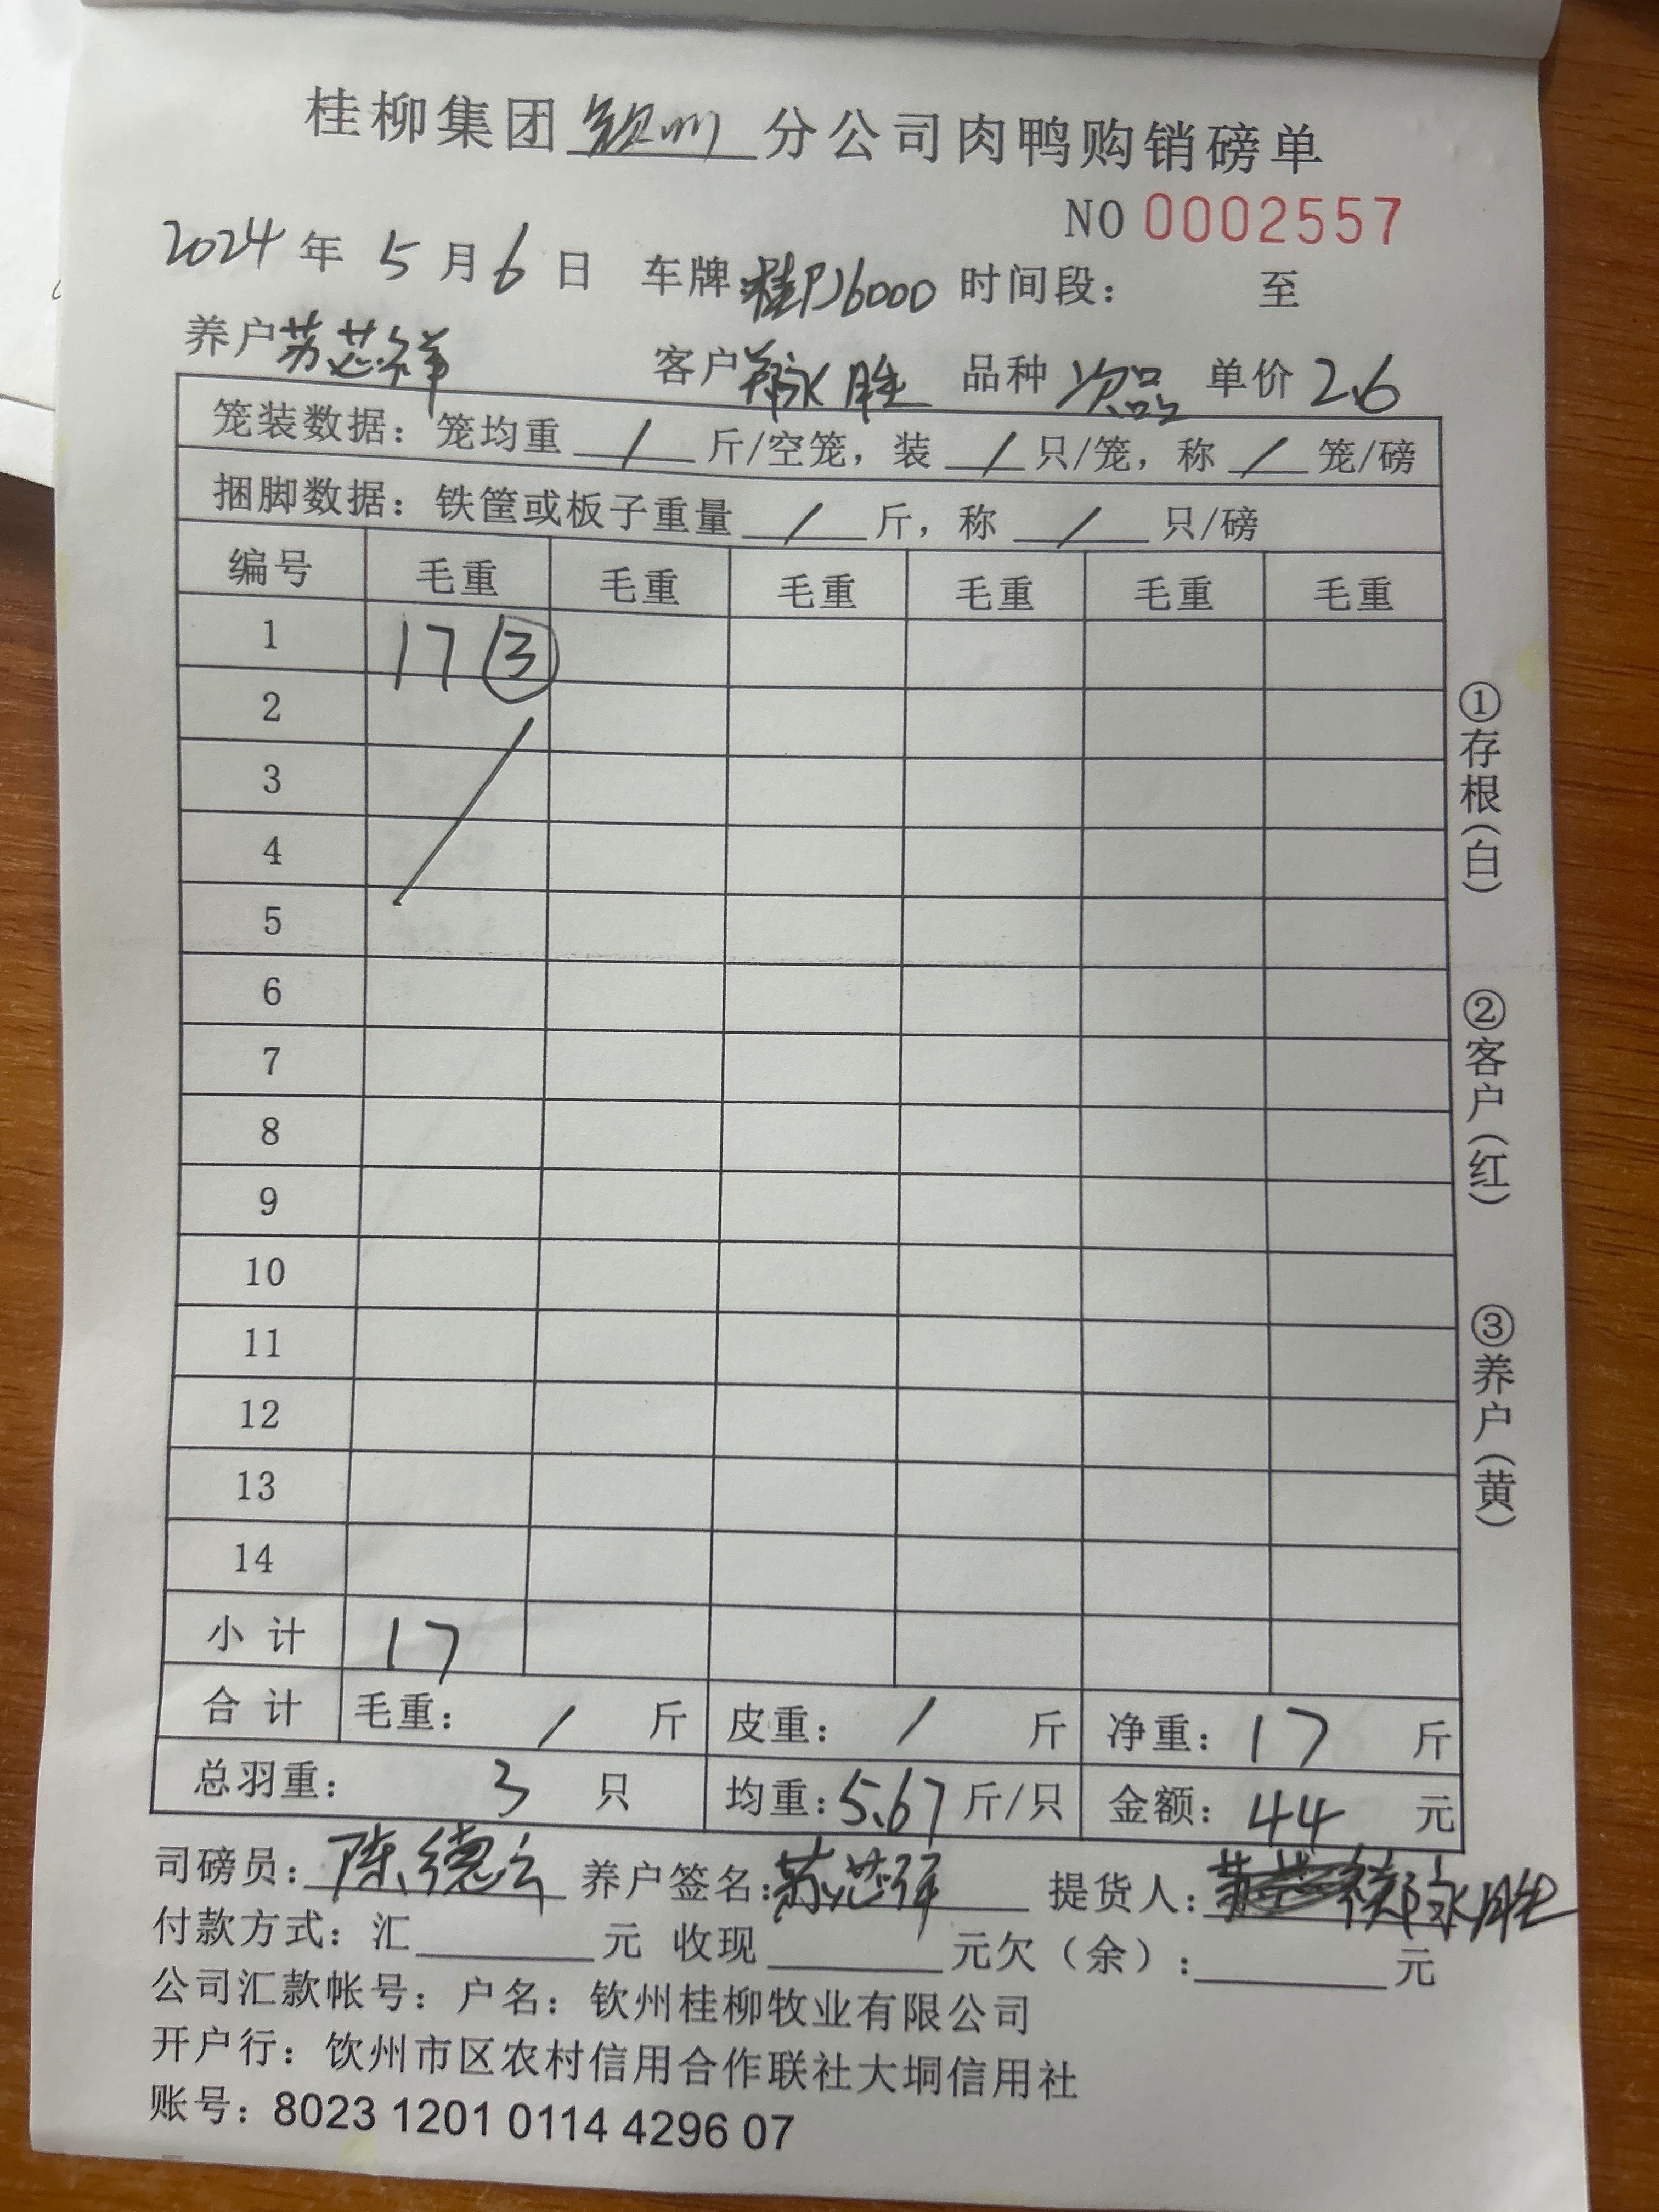 桂柳集团钦州分公司肉鸭购销磅单
NO 0002557
2024年5月6日 车牌:桂PJ6000 时间段: 至
养户苏芯祥 客户邓永胜 品种次品 单价2.6
笼装数据:笼均重 / 斤/空笼,装 / 只/笼,称 / 笼/磅
捆脚数据:铁筐或板子重量 / 斤,称 / 只/磅
编号 毛重 毛重 毛重 毛重 毛重 毛重
1 17 ③
2
3
4
5
6
7
8
9
10
11
12
13
14
小计 17
合计 毛重: / 斤 皮重: / 斤 净重:17 斤
总羽重: 3 只 均重:5.67斤/只 金额:44 元
司磅员:陈德云 养户签名:苏芯祥 提货人:邓永胜
付款方式:汇 元 收现 元欠(余): 元
公司汇款帐号:户名:钦州桂柳牧业有限公司
开户行:饮州市区农村信用合作联社大垌信用社
账号:8023 1201 0114 4296 07
①存根(白)
②客户(红)
③养户(黄)